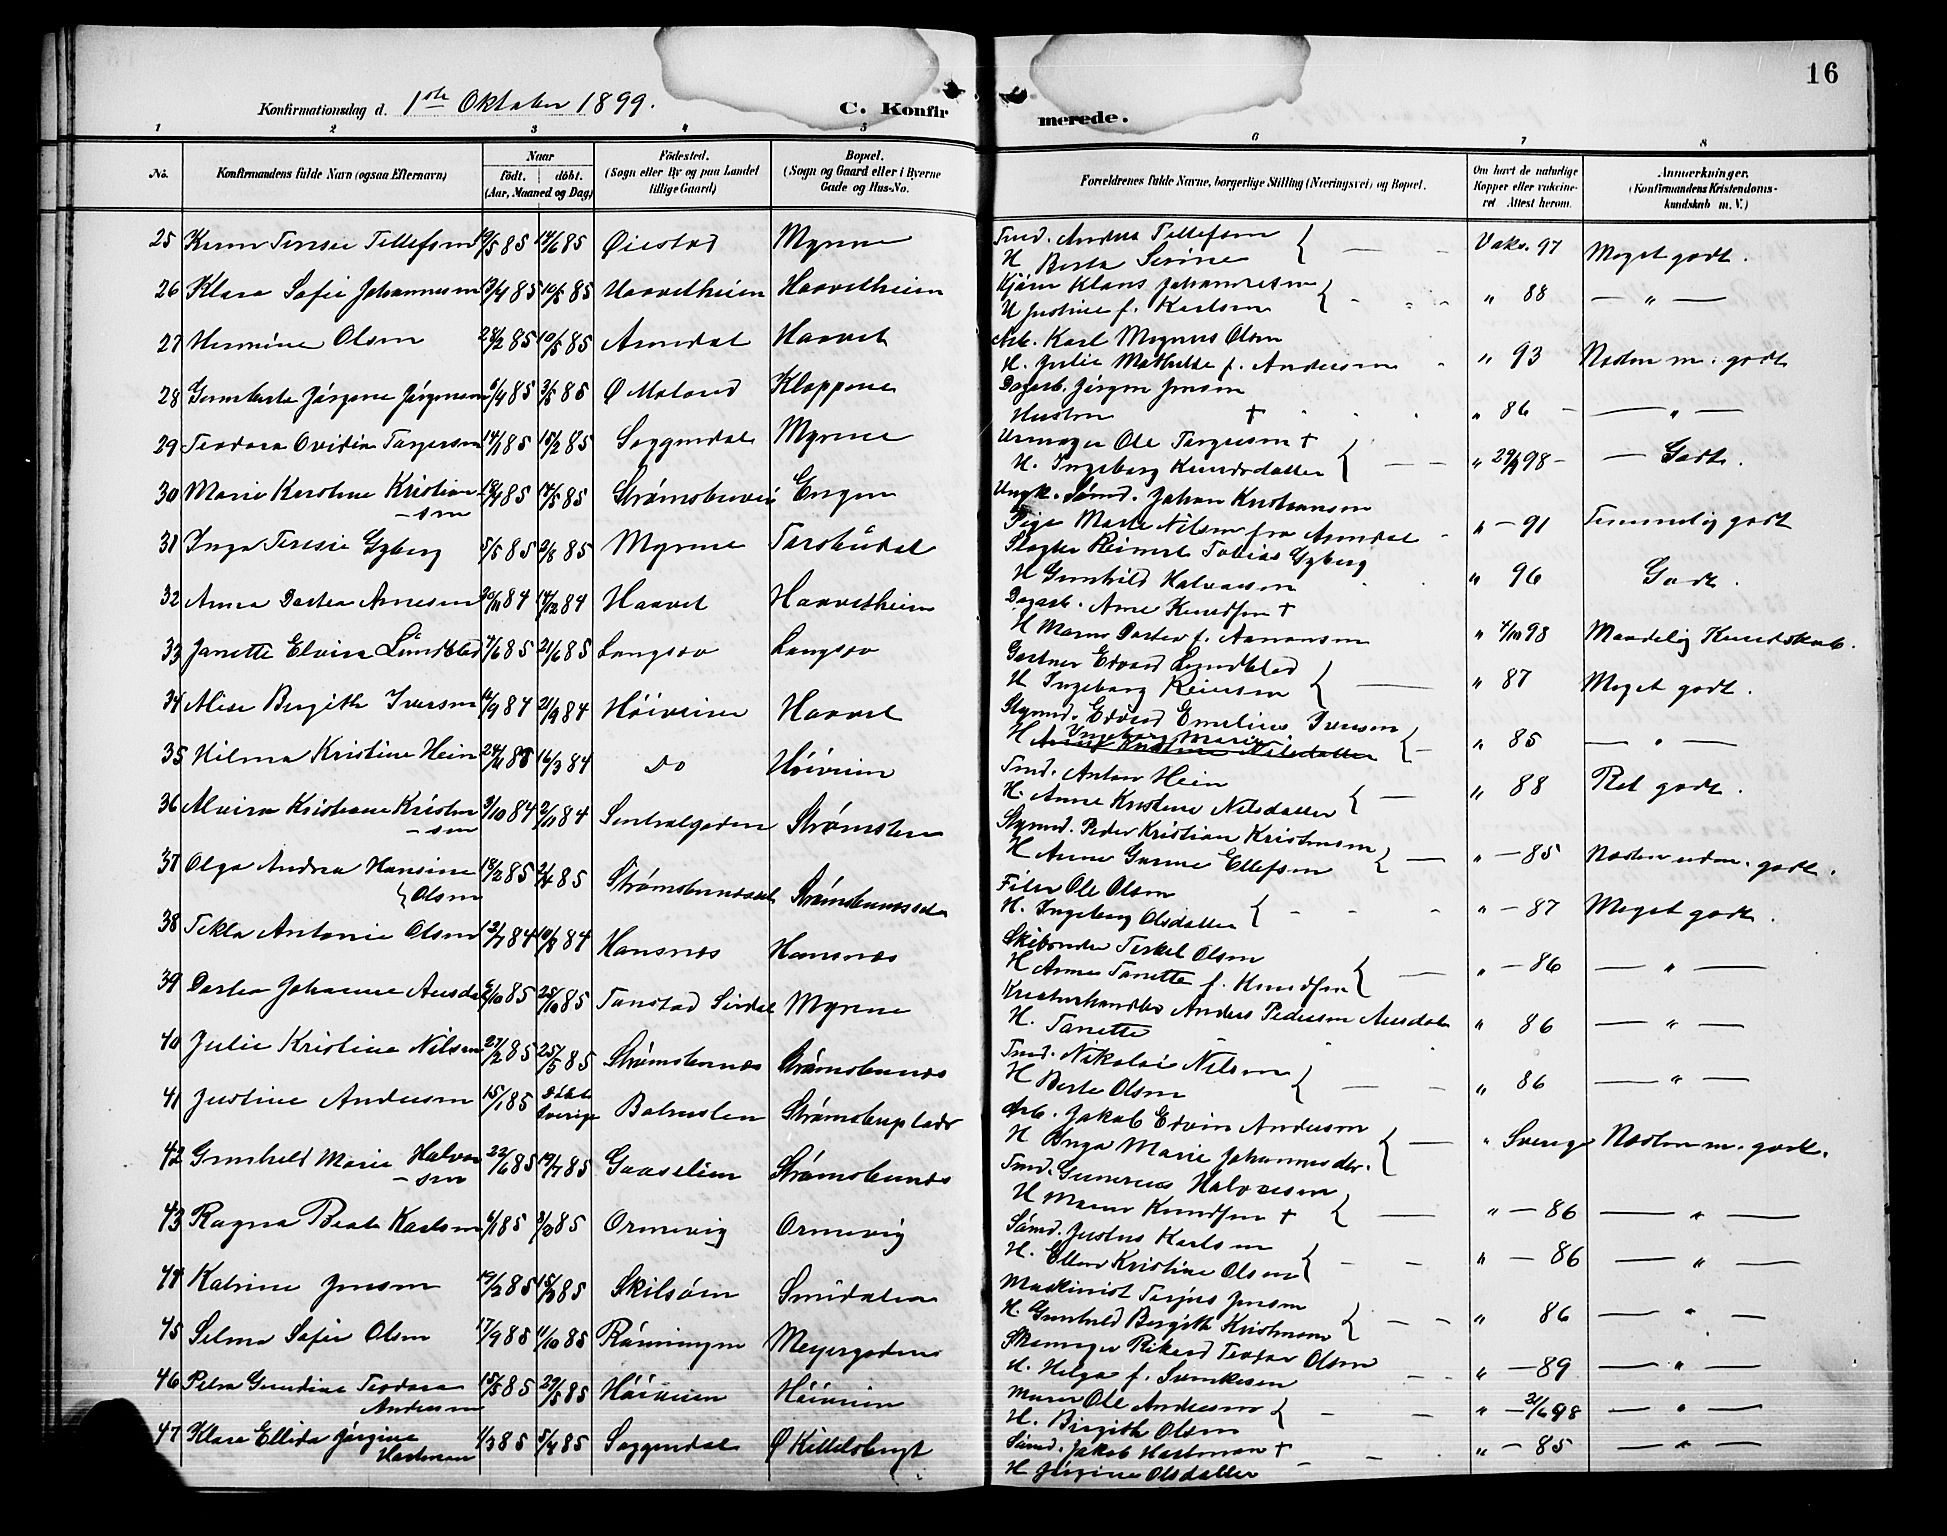 16
Konfirmationsdag d. 1ste Oktober 1899.
C. Konfirmerede.
1 2 3 4 5 6 7 8
No.
Konfirmandens fulde Navn (ogsaa Efternavn)
Naar
födt. döbt.
(Aar, Maaned og Dag)
Födested.
(Sogn eller By og paa Landet
tillige Gaard)
Bopæl.
(Sogn og Gaard eller i Byerne
Gade og Hus-No.
Forældrenes fulde Navne, borgerlige Stilling (Næringsvei) og Bopæl.
Om havt de naturlige
Kopper eller vakcine-
ret Attest herom.
Anmærkninger.
(Konfirmandens Kristendoms-
kundskab m. V.)
25 Teresie Tellefsen 14/6 85 Øiestad Myrene
Tmd. Andreas Tellefsen
H Berta Serine
Vaks. 97 Meget godt.
26 Klara Sofie Johannesen 10/5 85 Haavetheien Haavetheien
Klaus Johannesen
H Justine f. Karlsen
" 88 — " —
27 Hermine Olsen 28/2 85 10/5 85 Arendal Haavet
Arb. Karl Magnus Olsen
H. Julie Mathilde f. Andersen
" 93 Næsten m. godt
28 Jörgine Jörgensen 6/4 85 3/5 85 Ø Moland Kloppene
Dagarb. Jörgen Jensen
Hustru +
" 86 — " —
29 Teodora Ovidia Torgersen 14/1 85 15/2 85 Soggendal Myrene
Urmager Ole Torgersen +
H. Ingeborg Knudsdatter
" 29/9 98 — Godt.
30 Marie Karoline Kristian-
sen
18/4 85 14/5 85 Strømsbuveien Engene
Ungk. Sömd. Johan Kristiansen
Pige Marte Nilsen fra Arendal
" — 91 Temmelig godt
31 Inga Teresie Gyberg 5/5 85 2/8 85 Myrene Torsbudal
Slagter Reinert Tobias Gyberg
H Gunhild Halvorsen
" 96 Godt.
32 Anna Dortea Arnesen 20/11 84 14/12 84 Haavet Haavetheien
Dagarb. Arne Knudsen +
H Maren Dortea f. Aanonsen
" 4/10 98 Maadelig Kundskab.
33 Janette Elvira Lundblad 7/6 85 21/6 85 Langsæv Langsæv
Gartner Edvard Lundblad
H Ingeborg Reiersen
" 87 Meget godt.
34 Alise Bergithe Iversen 12/9 84 21/9 84 Höiveien Haavet
Styrmd. Edvard Emelius Iversen
Ingeborg Marie
H Anne Kristine Nilsdatter
" 85 — " —
35 Hilma Kristine Hein 16/3 84 do Höiveien
Tmd. Anton Hein
H. Anne Kristine Nilsdatter
" 88 Ret godt.
36 Alvira Kristiane Kristen-
sen
3/10 84 2/11 84 Sentralgaden Strømsbu
Styrmd. Peder Kristian Kristensen
H Anne Gurine Ellefsen
" — 85 Næsten udm. godt.
37 Olga Andrea Hansine
Olsen
18/2 85 2/4 85 Strømsbunesset Strømsbunesset
Filer Ole Olsen
H. Ingeborg Olsdatter
" — 87 Meget godt.
38 Tekla Antonie Olsen 12/7 84 10/8 84 Hansnæs Hansnæs
Skibsreder Terkel Olsen
H Anne Tanette f. Knudsen
" — 86 — " —
39 Dortea Johanne Ausdal 5/10 85 25/10 85 Tonstad Sirdal Myrene
Kreaturhandler Anders Pedersen Ausdal
H. Tanette
" 86 — " —
40 Julie Kristine Nilsen 27/2 85 25/5 85 Strømsbunæs Strømsbunæs
Tmd. Nikolai Nilsen
H Berte Olsen
" 86 — " —
41 Justine Andersen 15/1 85 döbt
Sverige
Strømsbuplads
Arb. Jakob Edvin Andersen
H Inga Marie Johannesdtr.
" Sverige Næsten m. godt.
42 Gunhild Marie Halvor-
sen
22/6 85 19/7 85 Gaaselien Strømsbunæs
Tmd. Gunerius Halvorsen
H Maren Knudsen +
" — 86 — " —
43 Ragna Beate Karlsen 6/1 85 8/3 85 Ormevig Ormevig
Sömd. Justus Karlsen
H. Ellen Kristine Olsen
" — 86 — " —
44 Katrine Jensen 19/2 85 15/3 85 Skilsöien Smidalen
Maskinist Terjus Jensen
H. Gunhild Bergithe Kristensen
" 86 — " —
45 Selma Sofie Olsen 17/9 85 11/10 85 Rönningen Meyergaden
Skomager Rikard Teodor Olsen
H. Helga f. Svenkesen
" — 89 — " —
46 Petra Gundine Teodora
Andersen
15/3 85 29/5 85 Höiveien Höiveien
Murer Ole Andersen
H. Birgithe Olsen
" — 21/6 98 — " —
47 Klara Ellida Jörgine
Hartman
1/3 85 5/4 85 Soggendal Ø Kittelsbugt
Sömd. Jakob Hartman +
H Jörgine Olsdatter
" — 85 — " —